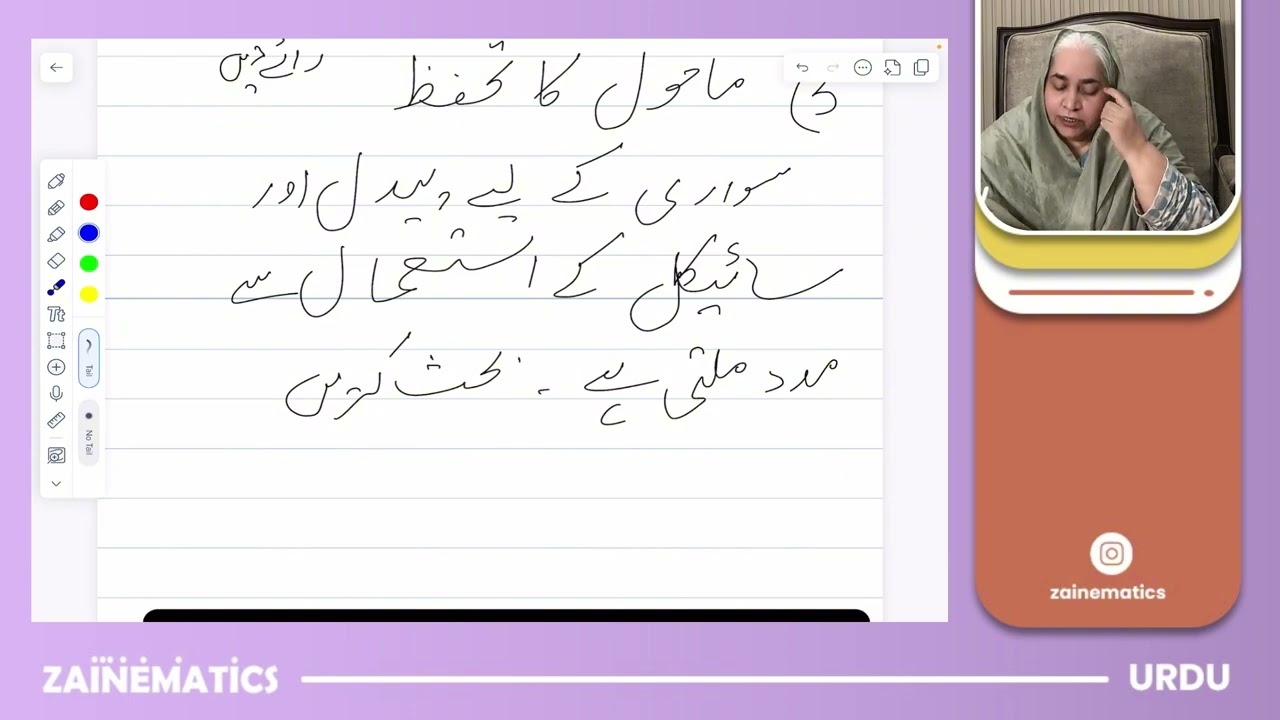 رائے دیں
ماحول کا تحفظ
سواری کے لیے پیدل اور
سائیکل کے استعمال سے
مدد ملتی ہے ۔ بحث کریں
Tt
Tail
No Tail
zainematics
ZAINEMATICS
URDU